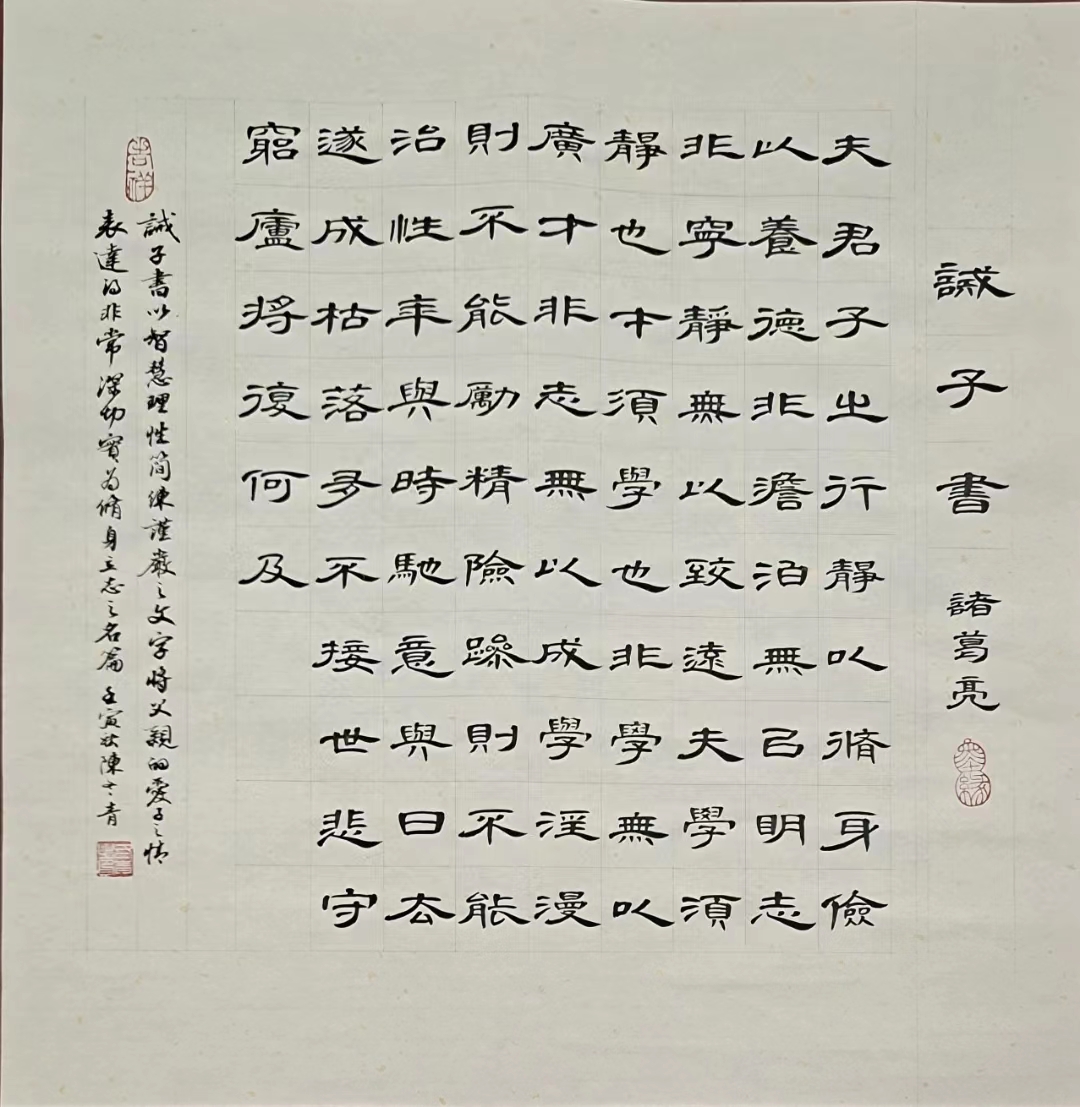 誡子書 諸葛亮
夫君子之行靜以脩身儉
以養德非澹泊無㠯明志
非寧靜無以致遠夫學須
靜也才須學也非學無以
廣才非志無以成學淫漫
則不能勵精險躁則不能
治性年與時馳意與日去
遂成枯落多不接世悲守
窮廬將復何及
吉祥
誡子書以智慧理性简練謹嚴之文字將父親的愛子之情
表達得非常深切實為脩身立志之名篇 壬寅秋陳青